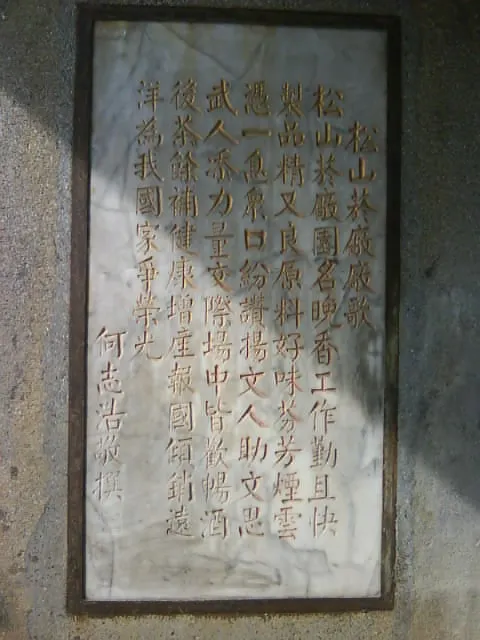 松山菸廠廠歌
松山菸厰園名晚香工作勤且快
製品精又良原料好味芬芳煙雲
憑一息眾口紛讚揚文人助文思
武人添力量交際場中皆歡暢酒
後茶餘補健康增產報國傾銷遠
洋為我國家爭榮光
何志浩敬撰